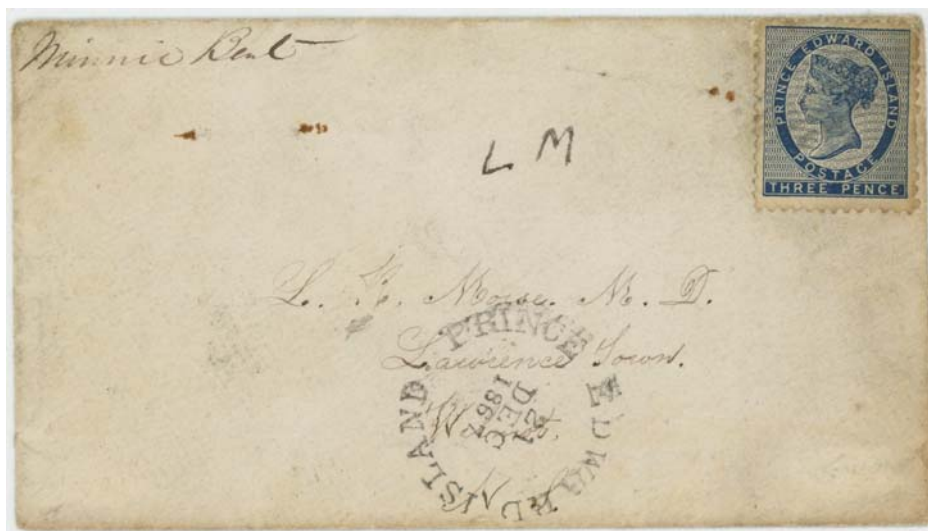 Minnie Bent
PRINCE EDWARD ISLAND
POSTAGE
THREE PENCE
L M
L. R. Morse. M. D.
Lawrence Town.
PRINCE EDWARD ISLAND
DEC
N. S.